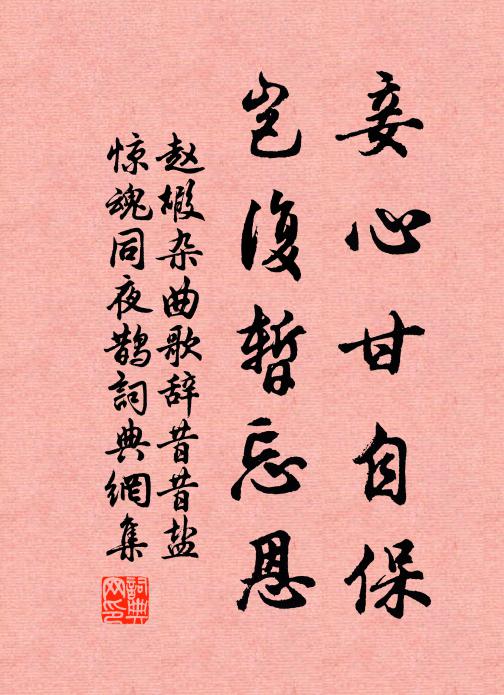 妾心甘自保
岂復暫忘恩
赵嘏杂曲歌辞昔昔盐
惊魂同夜鹊詞典網集
詞典网印